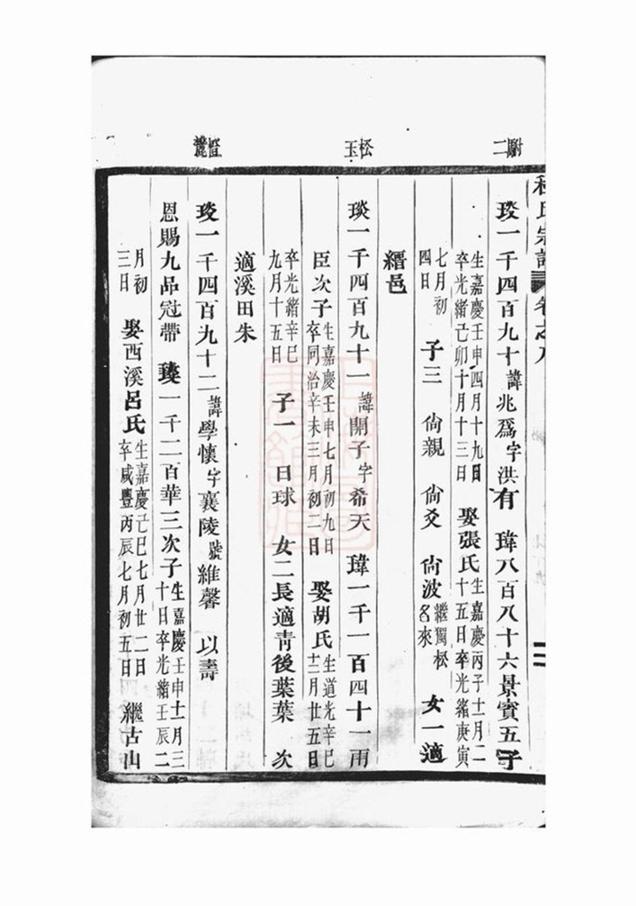 附二
松玉
程氏宗譜 卷之八
琰一千四百九十諱兆爲字洪有 瑋八百八十六景賓五子
生嘉慶壬申四月十九日
卒光緒己卯十月十三日 娶張氏生嘉慶丙子十一月二
十五日卒光緒庚寅
七月初
四日 子三 尙親 尙爻 尙波繼獨松
名來 女一適
縉邑
琰一千四百九十一諱開子字希天 瑋一千一百四十一雨
臣次子生嘉慶壬申七月初九日
卒同治辛未三月初二日 娶胡氏生道光辛巳
十二月廿五日
卒光緒辛巳
九月十五日 子一 日球 女二長適靑後葉葉 次
適溪田朱
琰一千四百九十二諱學懷字襄陵號維馨 以壽
恩賜九品冠帶 瑧一千二百華三次子生嘉慶壬申十一月三
十日卒光緒壬辰二
月初
三日 娶西溪呂氏生嘉慶己巳七月廿二日
卒咸豐丙辰七月初五日 繼古山